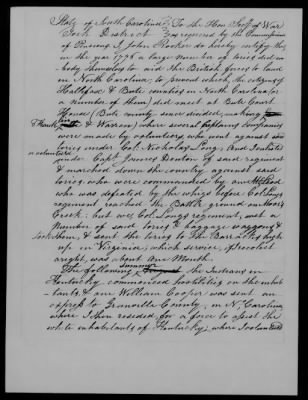 State of South Carolina } To the Hon. Secy of War
York District } as required by the Commissioner
of Pensions I, John Rooker do hereby certify that
in the year 1776 a large number of tories did em-
body themselves to aid the British forces to land
in North Carolina; to prevent which, the citizens of
Hallifax & Bute counties in North Carolina (or
a number of them) did meet at Bute Court
House (Bute county since divided, making
& Franklin & Warren) where several companies
were made by volunteers, who went against said
tories under Col. Nicholas Long. And I enlisted
a volunteer under Capt. James Denton of said regiment
& marched down the country against said
tories, who were commanded by one McLeod
who was defeated by the whigs before Col. Longs
regiment reached the Battle ground on Moor's
Creek. but we, Col. Longs regiment, met a
number of said tories & baggage waggons, &
took them, & sent the tories to the Barracks high
up in Virginia; which service, I recolect
aright, was about one Month.
The following summer, the Indians in
Kentucky commenced hostilities on the inhabi-
tants, & one William Cooper was sent an
express to Granville County, in N. Carolina
where I then resided, for a force to assist the
white inhabitants of Kentucky; where I volunteered